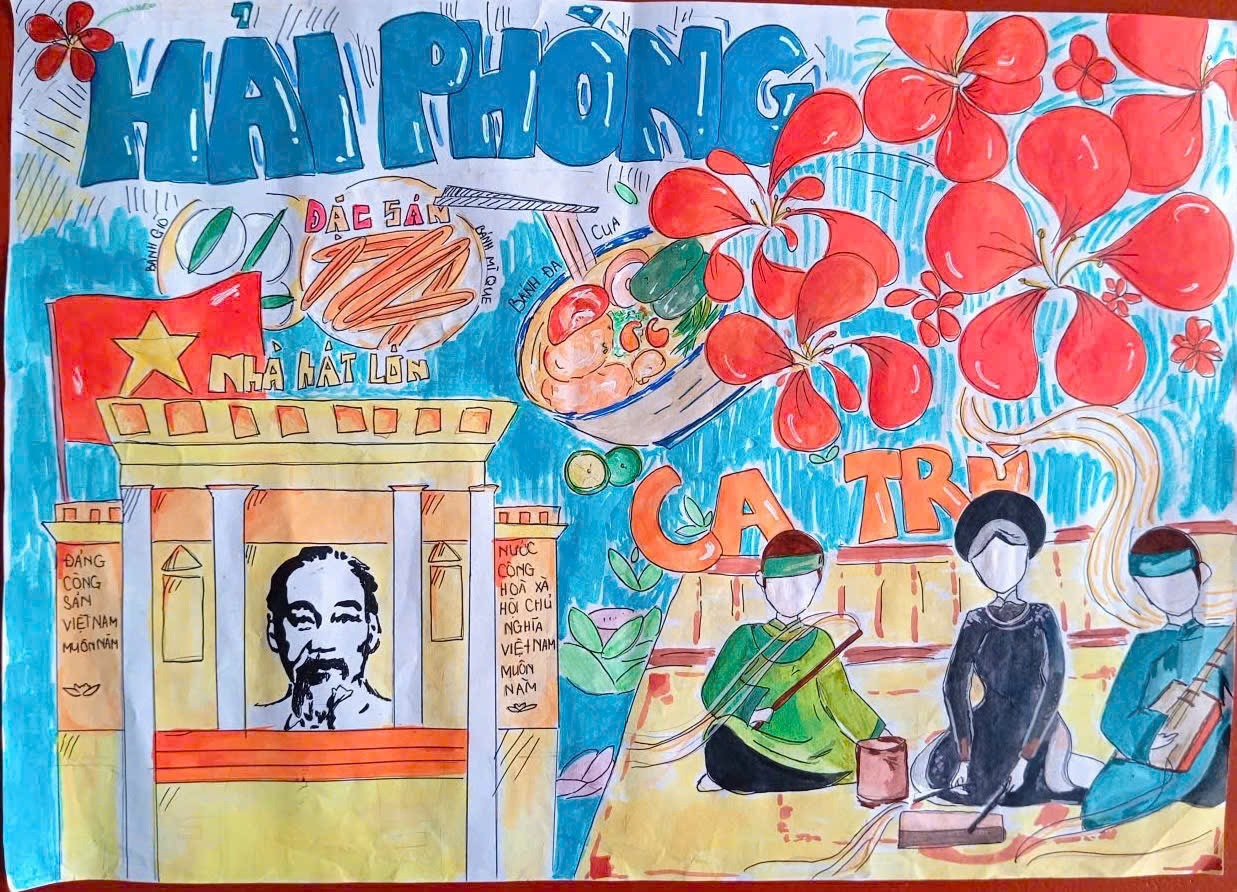 HẢI PHÒNG
ĐẶC SẢN
BÁNH GIÒ
BÁNH MÌ QUE
BÁNH ĐA
CUA
NHÀ HÁT LỚN
CA TRÙ
ĐẢNG
CỘNG
SẢN
VIỆT NAM
MUÔN NĂM
NƯỚC
CỘNG
HOÀ XÃ
HỘI CHỦ
NGHĨA
VIỆT NAM
MUÔN
NĂM